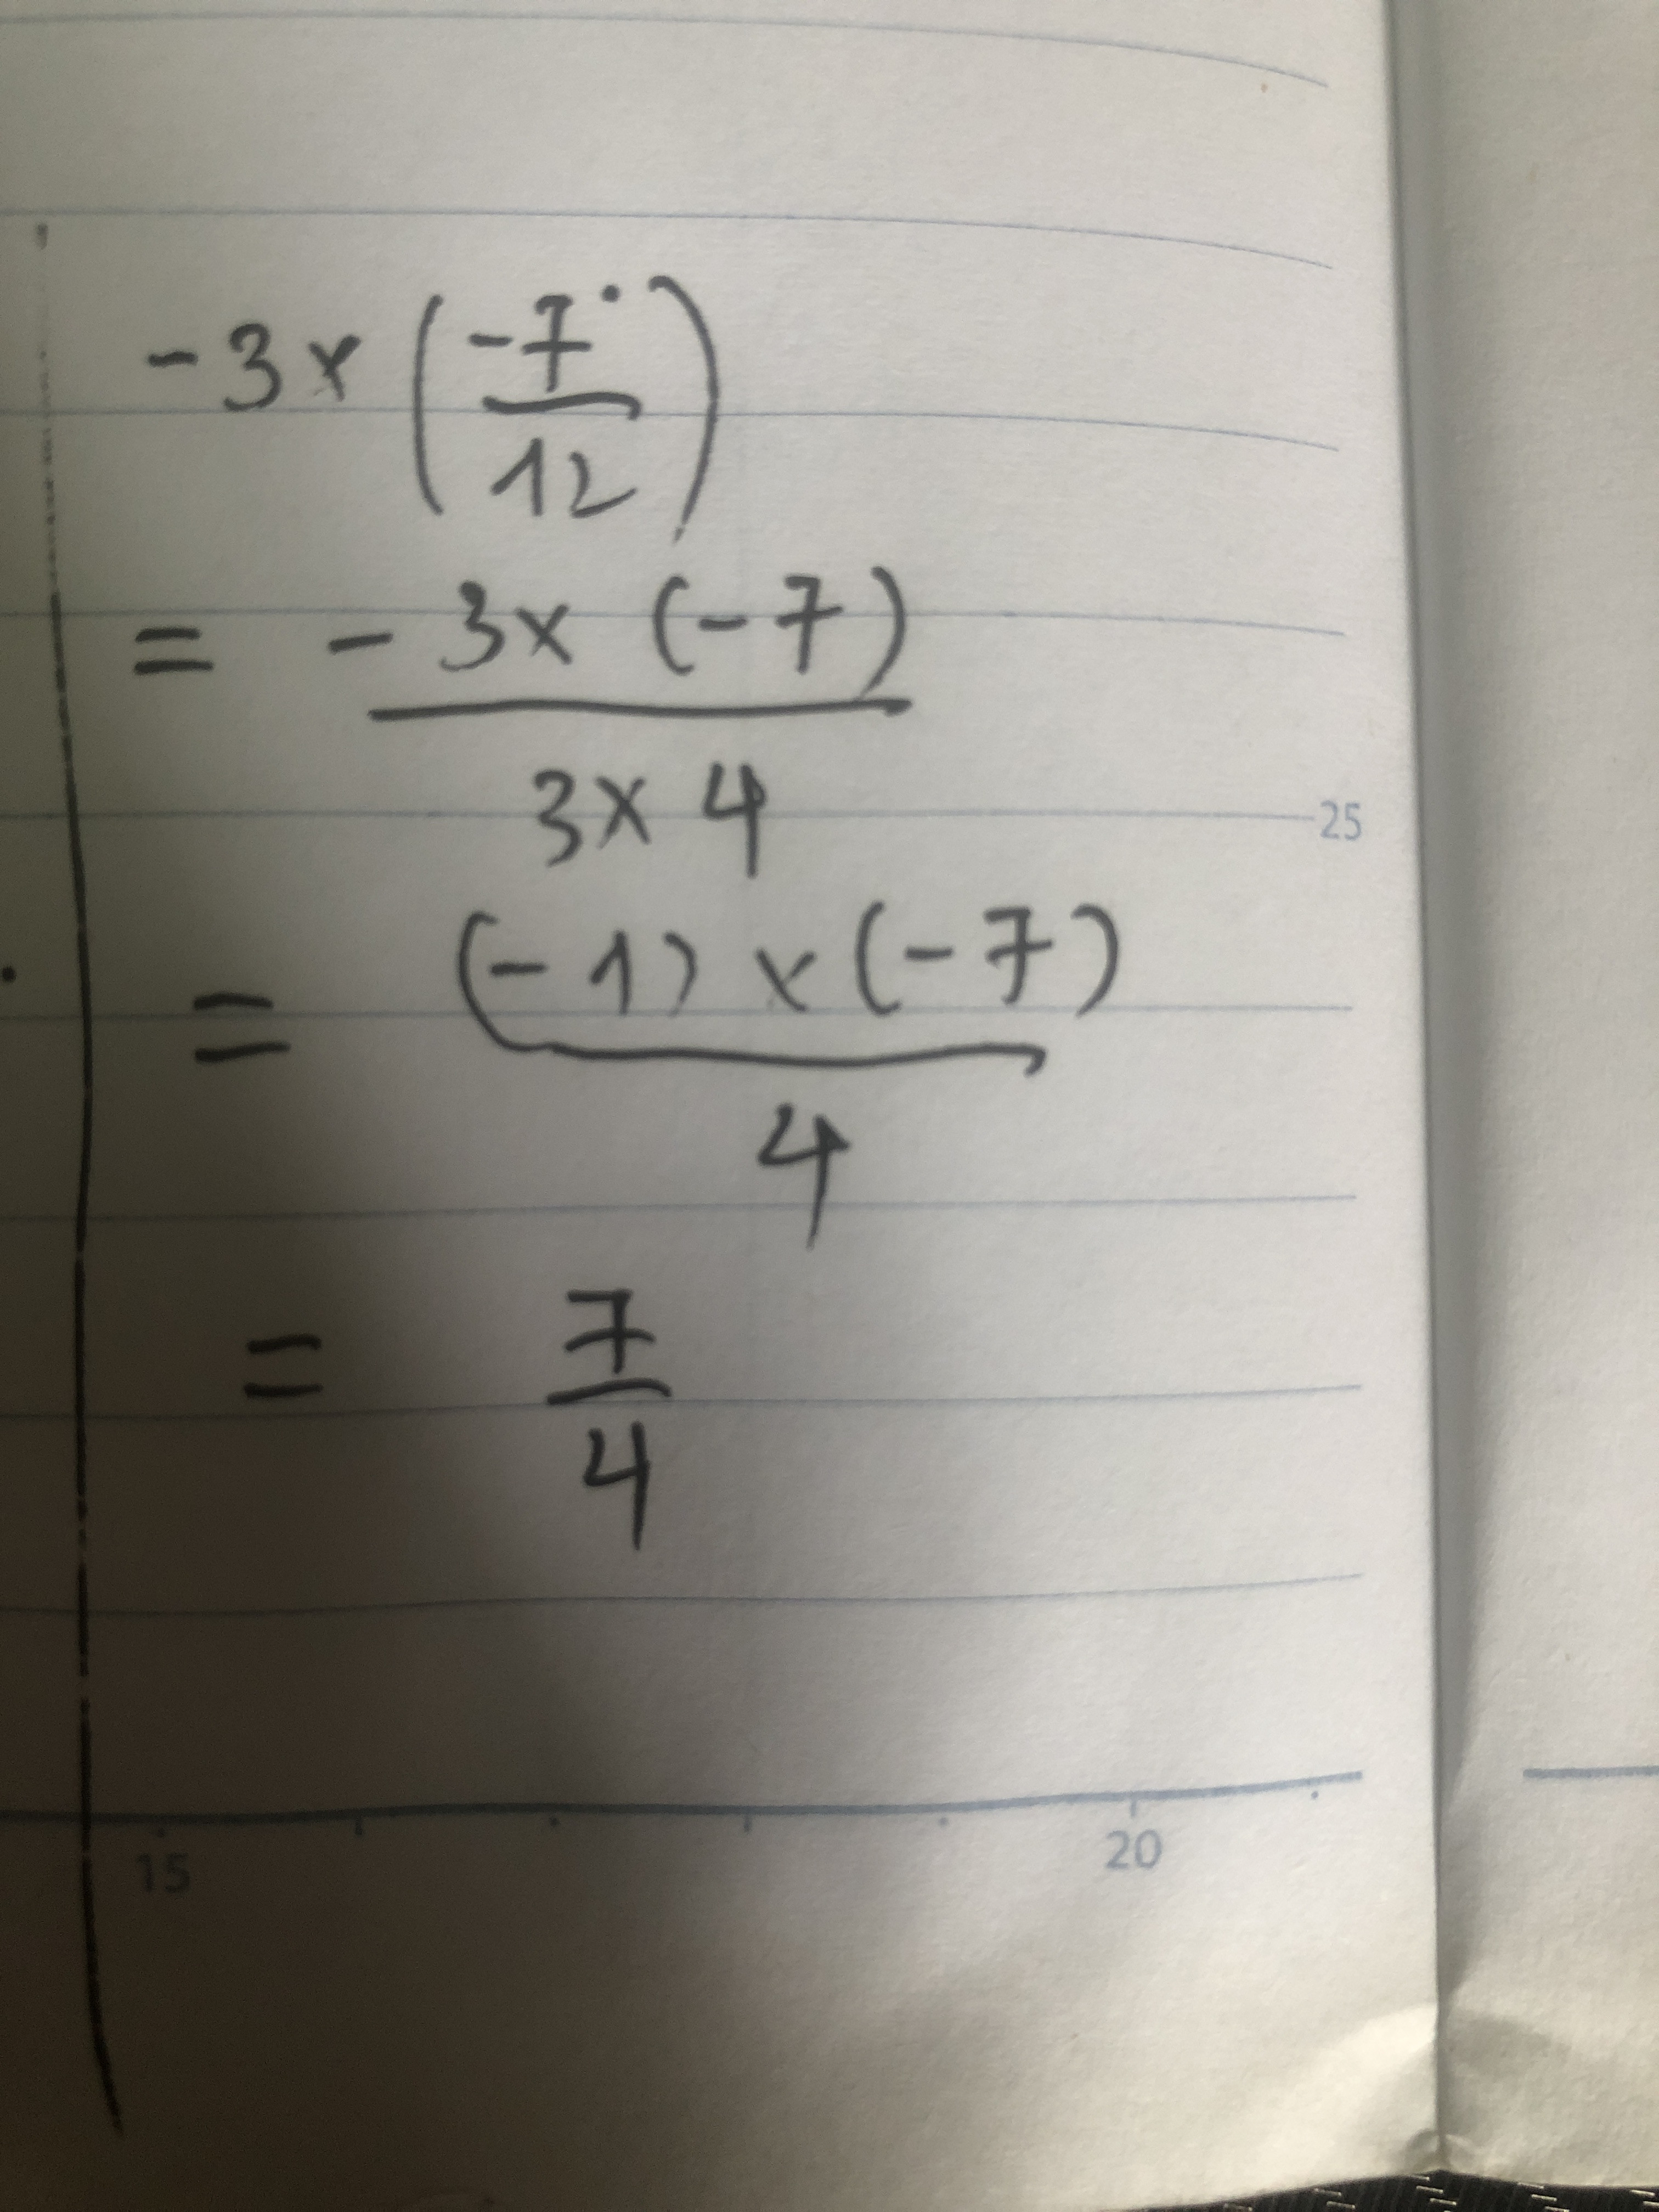 -3 × (-7/12)
= -3 × (-7)
3 × 4
25
= (-1) × (-7)
4
= 7/4
15 20